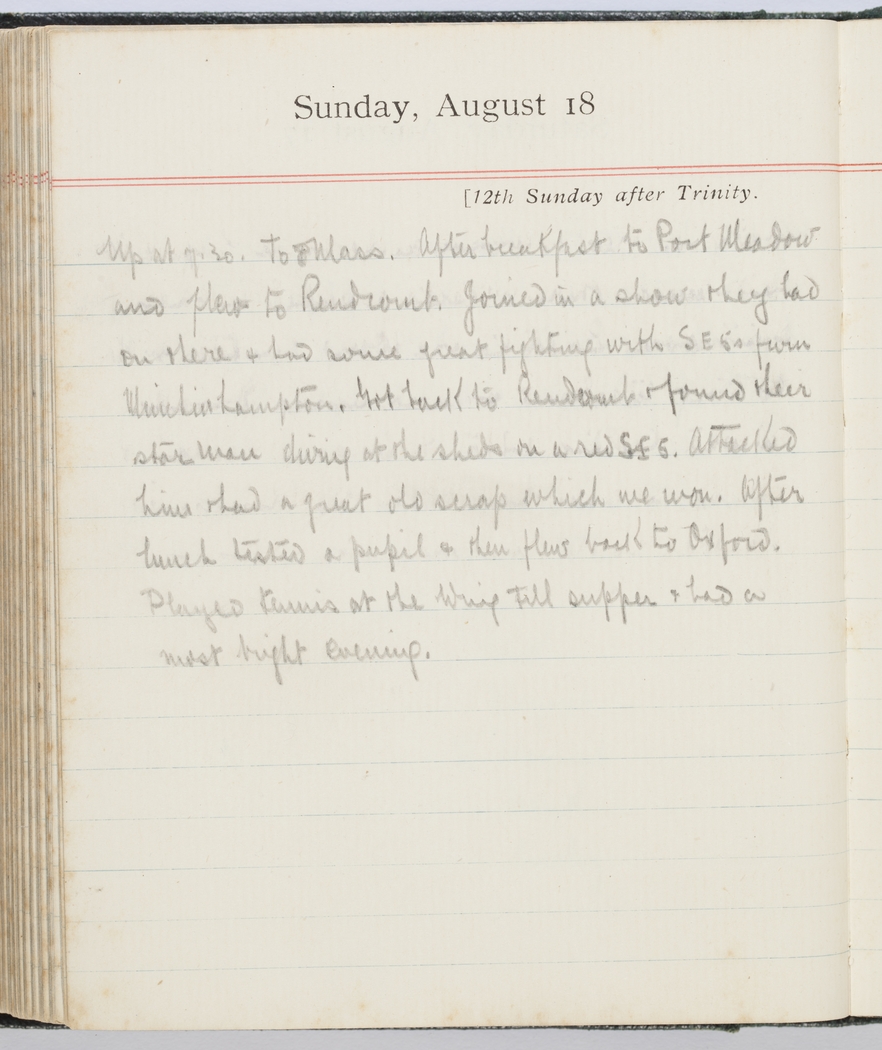 Sunday, August 18
[12th Sunday after Trinity.
Up at 7.30. To 8 Mass. After breakfast to Port Meadow
and flew to Rendcomb. Joined in a show they had
on there & had some great fighting with SE5s from
Minchinhampton. Got back to Rendcomb & found their
star man diving at the sheds on a red SE5. Attacked
him & had a great old scrap which we won. After
lunch tested a pupil & then flew back to Oxford.
Played tennis at the Wing till supper & had a
most bright evening.